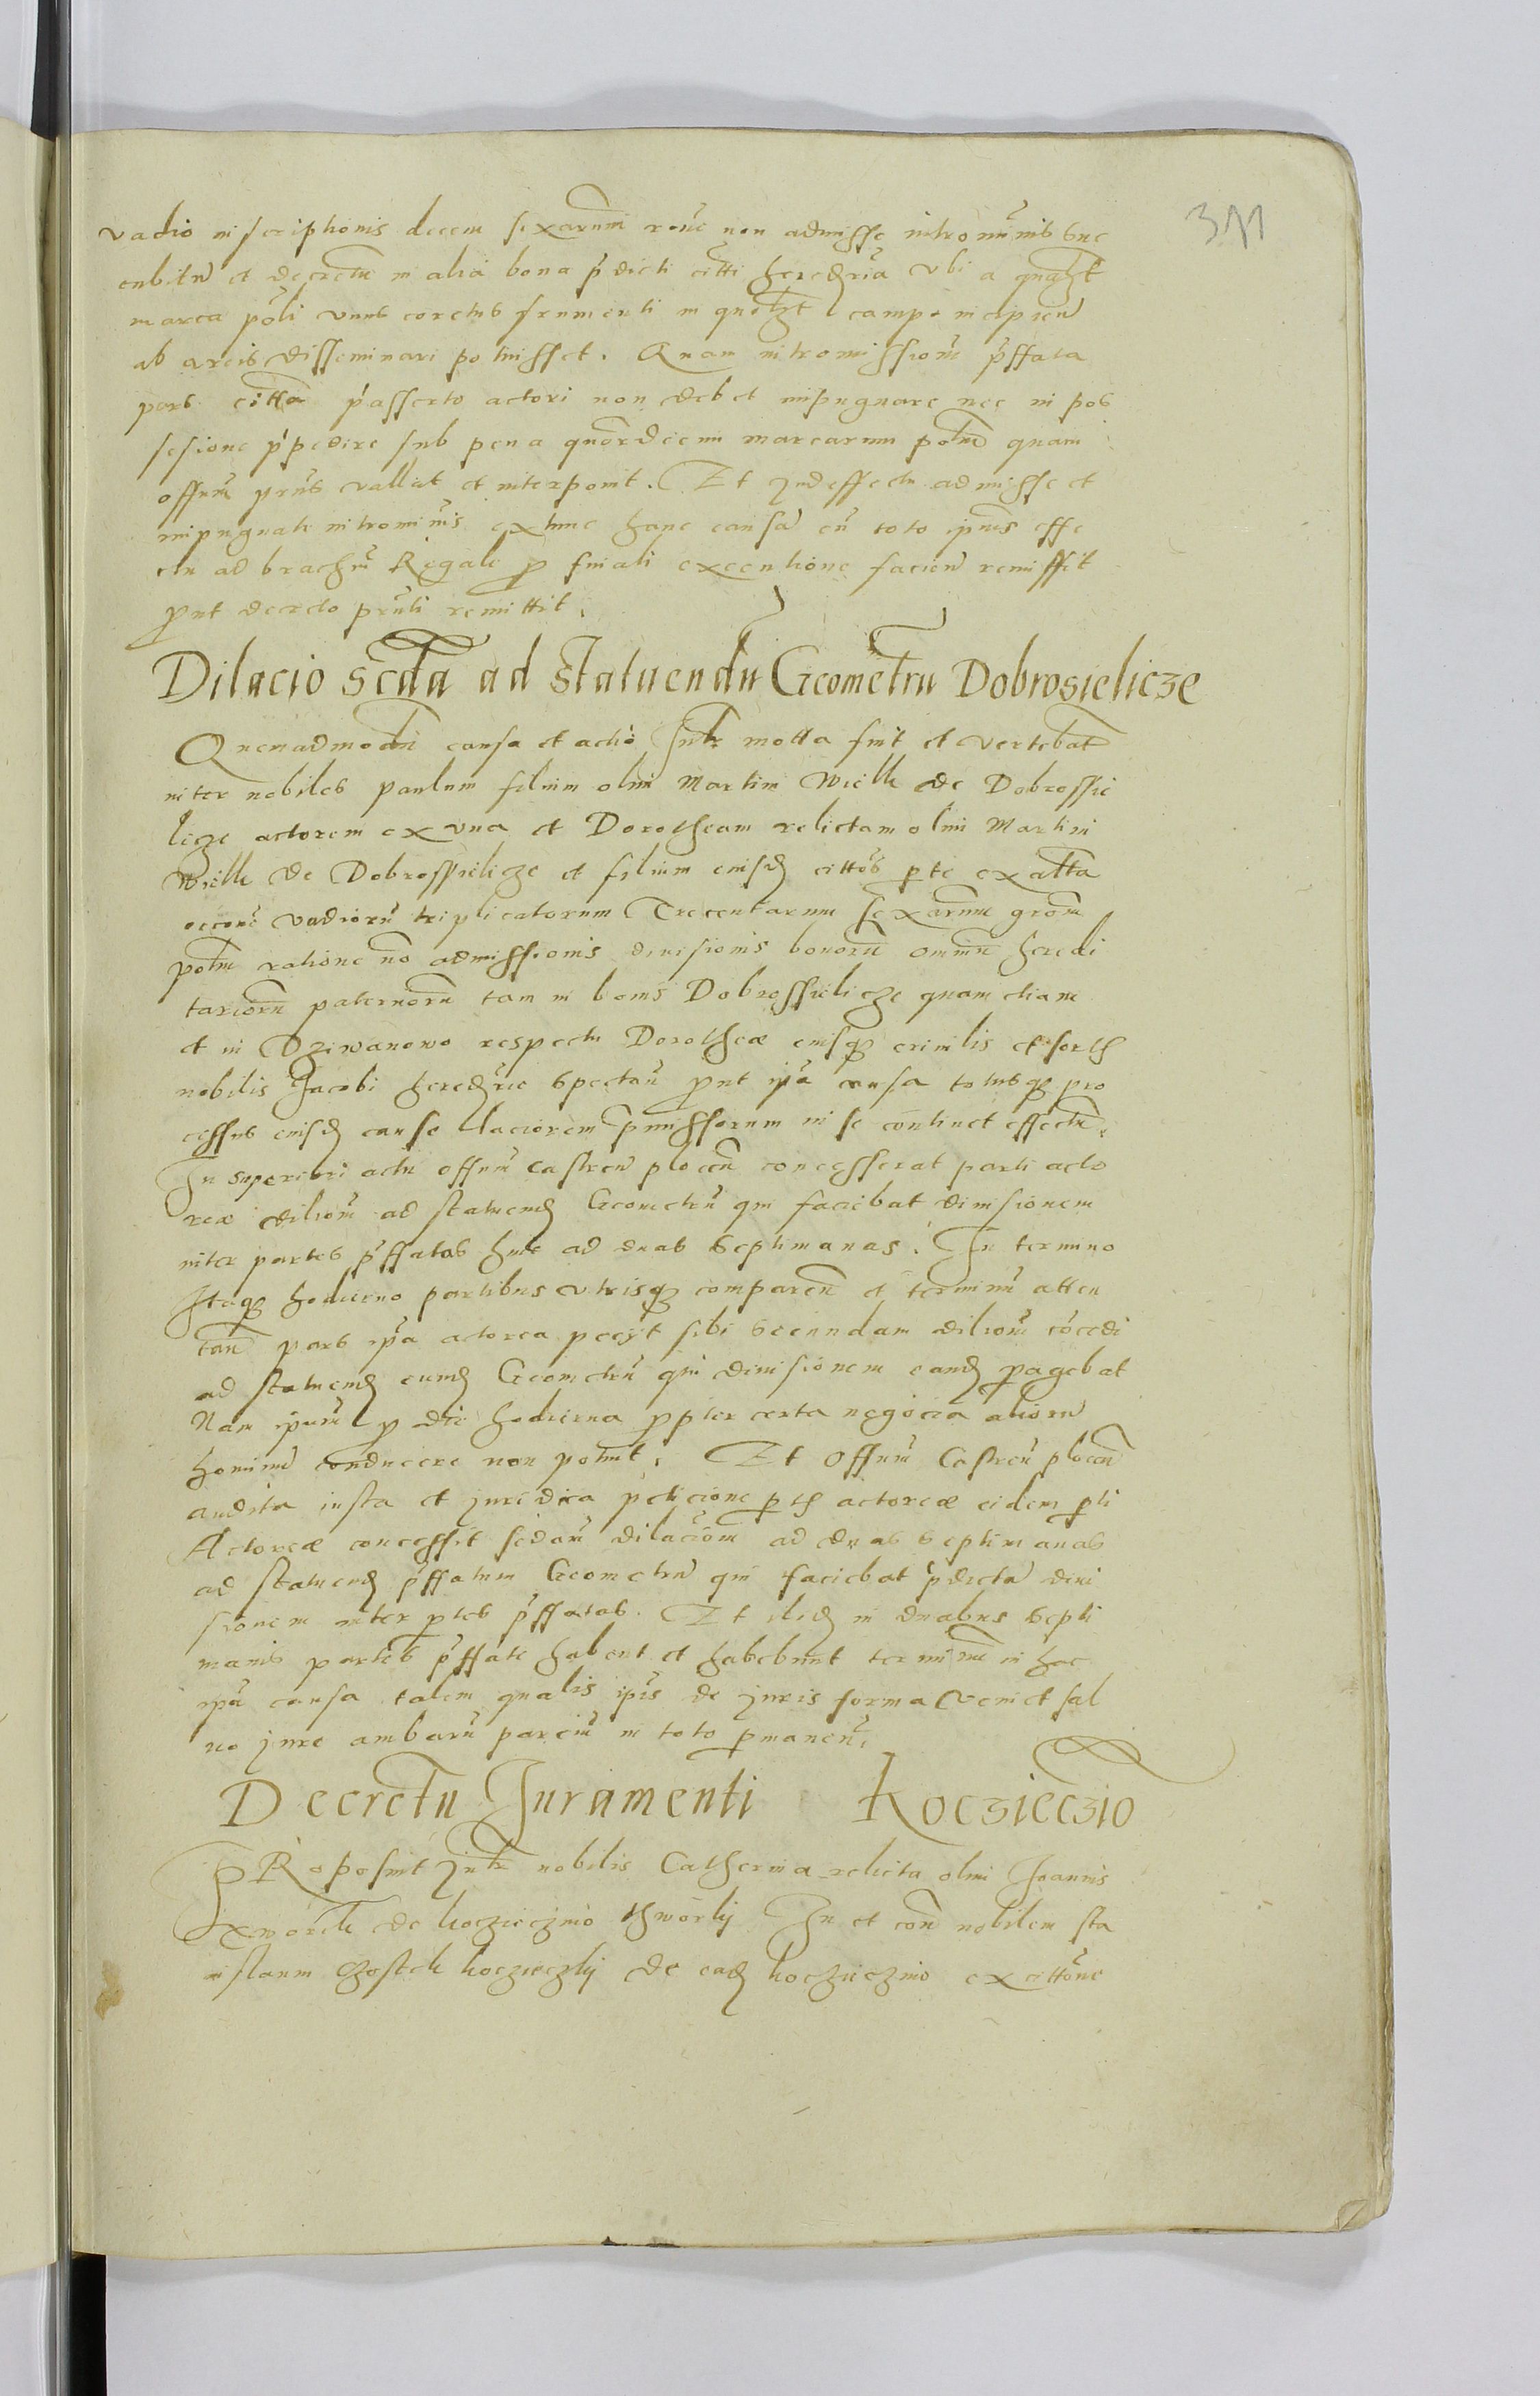 311
vadio inscriptionis decem sexarum rōne non admisse intromīnis suc
cubitū et decretū in alia bona p̄dicti citti heredr̄ia vbi a qualȝt
marca pōli vnus coretus frumenti in quolȝt campo incipien̄
ab areis disseminari potuisset. Quam intromissionē p̄ffata
pars citta p̄asserto actori non debet impugnare nec in pos
sesione p̄pedire sub pena quordecim marcarum pōlm quam
offm̄ prn̄s vallat et interponit. Et Indeffectu admisse et
impugnate intromīnis extunc hanc causā cū toto ipīus effe
ctu ad brachiū Regale p̄ finali executione facien̄ remissit
p̄ut decreto prn̄ti remittit.
Dilacio scda ad statuendū Geometrū Dobrosielicze
Quenadmodū causa et actio Intr̄ motta fuit et vertebat̄
inter nobiles paulum filium olim Martini Wilk de Dobrossie
licze actorem ex vna et Dorotheam relictam olim Martini
Wilk de Dobrossielicze et filium eiusd̄ cittos p̱te ex alt̄a
occōne vadiorū triplicatorum Trecentarum sexarum grom̄
polm̄ ratione nō admissionis diuisionis bonorū omniū heredi
tariorū paternorū tam in bonis Dobrossielicze quam etiam
et in Dziwanowo respectu Dorotheæ eiusq̄ crinilis et sorth
nobilis Jacobi heredr̄ie spectan̄ p̄ut ip̄a causa totusq̄ pro
cessus eiusd̄ cause laciorem p̄missorum in se continet effectū.
In superiori actu offm̄ castren̄ plocen̄ concesserat parti acto
reæ dilionē ad statuend̄ Geometrū qui faciebat diuisionem
inter partes p̄ffatas hinc ad duas septimanas. In termino
Itaq̄ hodierno partibus vtrisq̄ comparen̄ et terminū atten
tan̄ pars ip̄a actorea pecijt sibi secundam dilionē cōcedi
ad statuend̄ eumd̄ Geometrū qui diuisionem eand̄ p̱agebat
Nam ipsum p̱ die hodierna p̄pter certa negocia aliorū
hominū conducere non potuit. Et Offm̄ Castren̄ plocen̄
audita iusta et juridica peticione p̱th actoreæ eidem p̱ti
Actoreæ concessit scdam̄ dilacionē ad duas septimanas
ad statuend̄ p̄ffatum Geometrū qui faciebat p̄dictā diui
sionem inter p̱tes p̄ffatas. Et ibid̄ in duabus septi
manis partes p̄ffate habent et habebunt terminū in hac
ip̄a causa talem qualis ip̄is de juris forma veniet sal
uo jure ambarū parciū in toto p̱manen̄.
Decretū Juramenti Koczieczio
PRoposuit Intr̄ nobilis Catherina relicta olim Joannis
de koczieczino thworkij In et con̄ nobilem sta
nislaum Czostek koczieczkij de ead̄ koczieczino ex cittōne